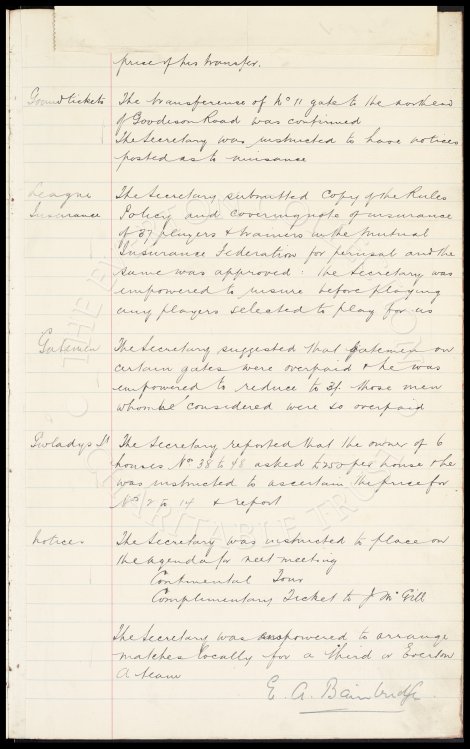 price of his transfer.
Goodison tickets
The transference of No 11 gate to the north end
of Goodison Road was confirmed
The Secretary was instructed to have notices
posted as to nuisance
League
Insurance
The Secretary submitted copy of the Rules
Policy and covering note of insurance
of 37 players & trainers in the Mutual
Insurance Federation for perusal and the
same was approved. The Secretary was
empowered to insure before playing
any players selected to play for us
Gatemen
The Secretary suggested that Gatemen on
certain gates were overpaid & he was
empowered to reduce to 3/- those men
whom he considered were so overpaid
Gwladys St
The Secretary reported that the owner of 6
houses Nos 38 to 48 asked £250 per house & he
was instructed to ascertain the price for
Nos 2 to 14 & report
Notices
The Secretary was instructed to place on
the agenda for next meeting
Continental Tour
Complimentary Ticket to J McGill
The Secretary was empowered to arrange
matches locally for a third or Everton
A team
E. A. Bainbridge
THE EV
CHARITABLE TRUST